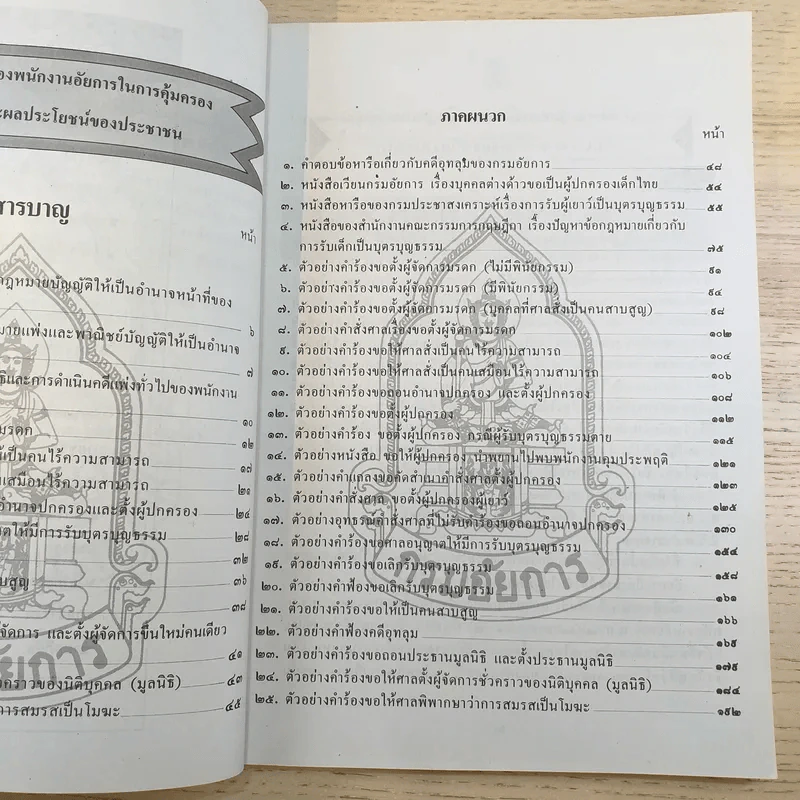 องพนักงานอัยการในการคุ้มครอง
ะผลประโยชน์ของประชาชน
สารบาญ
หน้า
กฎหมายบัญญัติให้เป็นอำนาจหน้าที่ของ
๖
มายแพ่งและพาณิชย์บัญญัติให้เป็นอำนาจ
๗
ธิและการดำเนินคดีแพ่งทั่วไปของพนักงาน
๑๐
มรดก ๑๒
เป็นคนไร้ความสามารถ ๑๗
เสมือนไร้ความสามารถ ๒๑
อำนาจปกครองและตั้งผู้ปกครอง ๒๔
าตให้มีการรับบุตรบุญธรรม ๒๘
๓๒
าบสูญ ๓๖
๓๘
จัดการ และตั้งผู้จัดการขึ้นใหม่คนเดียว
๔๑
คราวของนิติบุคคล (มูลนิธิ) ๔๓
การสมรสเป็นโมฆะ ๔๕
ภาคผนวก
หน้า
๑. คำตอบข้อหารือเกี่ยวกับคดีอุทลุมของกรมอัยการ ๔๘
๒. หนังสือเวียนกรมอัยการ เรื่องบุคคลต่างด้าวขอเป็นผู้ปกครองเด็กไทย ๕๔
๓. หนังสือหารือของกรมประชาสงเคราะห์เรื่องการรับผู้เยาว์เป็นบุตรบุญธรรม ๕๕
๔. หนังสือของสำนักงานคณะกรรมการกฤษฎีกา เรื่องปัญหาข้อกฎหมายเกี่ยวกับ
การรับเด็กเป็นบุตรบุญธรรม ๗๕
๕. ตัวอย่างคำร้องขอตั้งผู้จัดการมรดก (ไม่มีพินัยกรรม) ๙๑
๖. ตัวอย่างคำร้องขอตั้งผู้จัดการมรดก (มีพินัยกรรม) ๙๔
๗. ตัวอย่างคำร้องขอตั้งผู้จัดการมรดก (บุคคลที่ศาลสั่งเป็นคนสาบสูญ) ๙๘
๘. ตัวอย่างคำสั่งศาลเรื่องขอตั้งผู้จัดการมรดก ๑๐๒
๙. ตัวอย่างคำร้องขอให้ศาลสั่งเป็นคนไร้ความสามารถ ๑๐๔
๑๐. ตัวอย่างคำร้องขอให้ศาลสั่งเป็นคนเสมือนไร้ความสามารถ ๑๐๖
๑๑. ตัวอย่างคำร้องขอถอนอำนาจปกครอง และตั้งผู้ปกครอง ๑๐๘
๑๒. ตัวอย่างคำร้องขอตั้งผู้ปกครอง ๑๑๒
๑๓. ตัวอย่างคำร้อง ขอตั้งผู้ปกครอง กรณีผู้รับบุตรบุญธรรมตาย ๑๑๕
๑๔. ตัวอย่างหนังสือ ขอให้ผู้ปกครอง นำพยานไปพบพนักงานคุมประพฤติ ๑๒๑
๑๕. ตัวอย่างคำแถลงขอคัดสำเนาคำสั่งศาลตั้งผู้ปกครอง ๑๒๓
๑๖. ตัวอย่างคำสั่งศาล ขอตั้งผู้ปกครองผู้เยาว์ ๑๒๕
๑๗. ตัวอย่างอุทธรณ์คำสั่งศาลที่ไม่รับคำร้องขอถอนอำนาจปกครอง ๑๓๐
๑๘. ตัวอย่างคำร้องขอศาลอนุญาตให้มีการรับบุตรบุญธรรม ๑๕๔
๑๙. ตัวอย่างคำร้องขอเลิกรับบุตรบุญธรรม ๑๕๘
๒๐. ตัวอย่างคำฟ้องขอเลิกรับบุตรบุญธรรม ๑๖๑
๒๑. ตัวอย่างคำร้องขอให้เป็นคนสาบสูญ ๑๖๖
๒๒. ตัวอย่างคำฟ้องคดีอุทลุม ๑๖๙
๒๓. ตัวอย่างคำร้องขอถอนประธานมูลนิธิ และตั้งประธานมูลนิธิ ๑๗๙
๒๔. ตัวอย่างคำร้องขอให้ศาลตั้งผู้จัดการชั่วคราวของนิติบุคคล (มูลนิธิ) ๑๘๔
๒๕. ตัวอย่างคำร้องขอให้ศาลพิพากษาว่าการสมรสเป็นโมฆะ ๑๙๒
กรมอัยการ